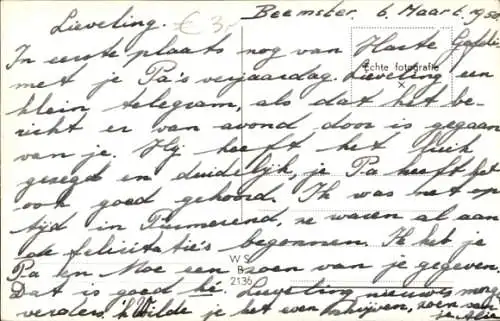 Beemster. 6. Maart.
Lieveling. € 3,-
In eerste plaats nog van Harte Gefeli
met je Pa's verjaardag. Lieveling een
Echte fotografie
klein telegram, als dat het be-
richt er van avond door is gegaan
van je. Hij heeft het leuk
gezegd en duidelijk, je Pa heeft het
ook goed gehoord. Ik was net op
tijd in Purmerend, ze waren al aan
de felicitatie's begonnen. Ik heb je
W S
B
2136
Pa en Moe een zoen van je gegeven.
Dat is goed hé. Lieveling nieuws
verders. 'k Wilde je het even schrijven, zoen van
je